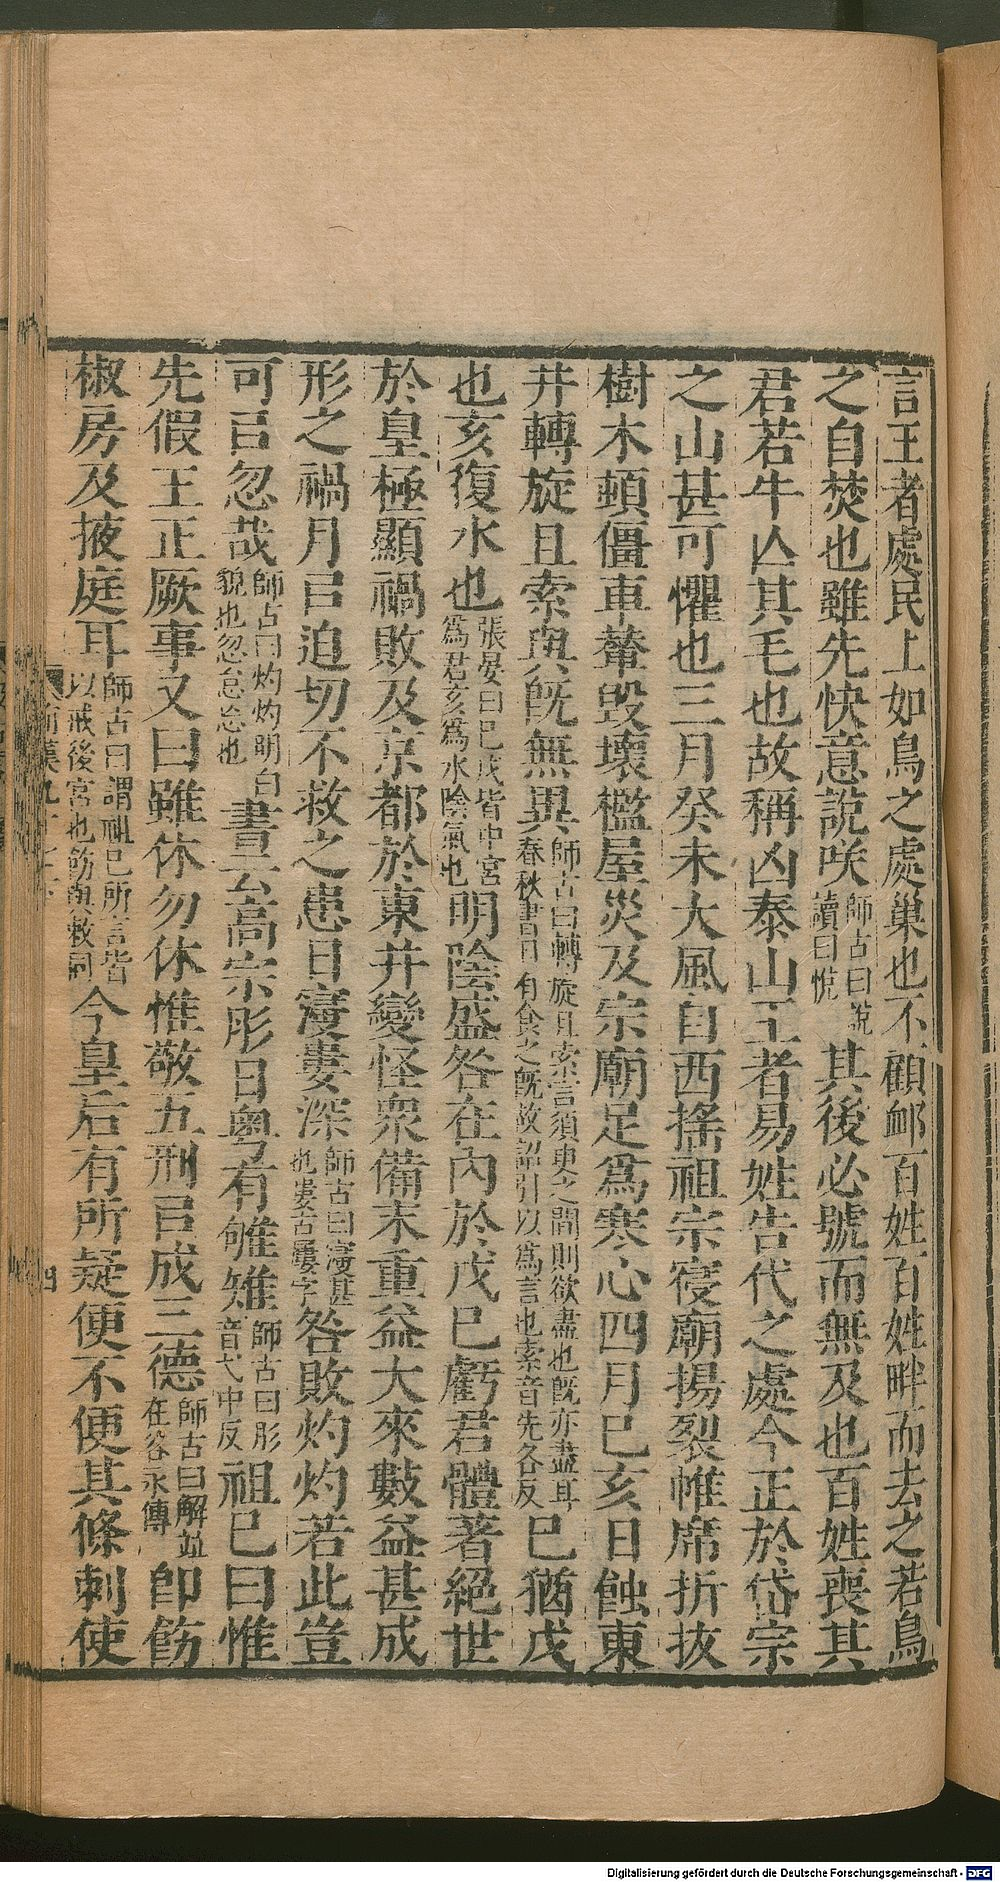 言王者處民上如鳥之處巢也不顧䘏百姓百姓畔而去之若鳥
之自焚也雖先快意說咲師古曰說讀曰悅其後必號而無及也百姓喪其
君若牛亾其毛也故稱凶泰山王者易姓告代之處今正於岱宗
之山甚可懼也三月癸未大風自西搖祖宗寑廟揚裂帷席折拔
樹木頓僵車輦毀壞檻屋災及宗廟足爲寒心四月己亥日蝕東
井轉旋且索與既無異師古曰轉旋且索言須臾之間則欲盡也既亦盡耳春秋書日有食之既故詔引以爲言也索音先各反己猶戊
也亥復水也張晏曰己戊皆中宮爲君亥爲水陰氣也明陰盛咎在內於戊己虧君體著絕世
於皇極顯禍敗及京都於東井變怪衆備末重益大來數益甚成
形之禍月㠯迫切不救之患日寖婁深師古曰寖甚也婁古屢字咎敗灼灼若此豈
可㠯忽哉師古曰灼灼明白貌也忽怠忘也書云高宗肜日粵有雊雉師古曰肜音弋中反祖己曰惟
先假王正厥事又曰雖休勿休惟敬五刑㠯成三德師古曰解並在谷永傳卽飭
椒房及掖庭耳師古曰謂祖己所言皆以戒後宮也飭與敕同今皇后有所疑便不便其條刺使
四
Digitalisierung gefördert durch die Deutsche Forschungsgemeinschaft - DFG